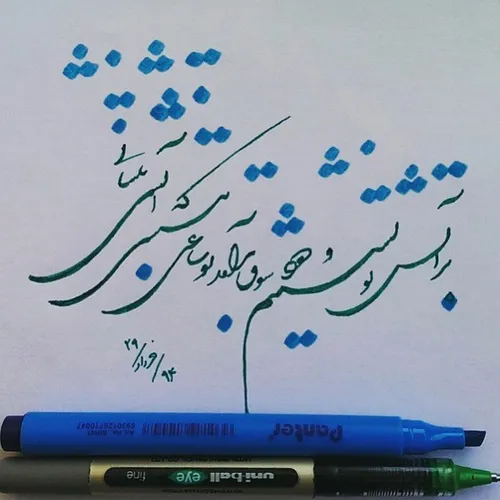 بر آتش تو نشستیم و دود شوق برآمد تو ساعتی ننشستی که آتشی بنشانی
۲۹/خرداد/۹۴
Panter
uni-ball eye fine